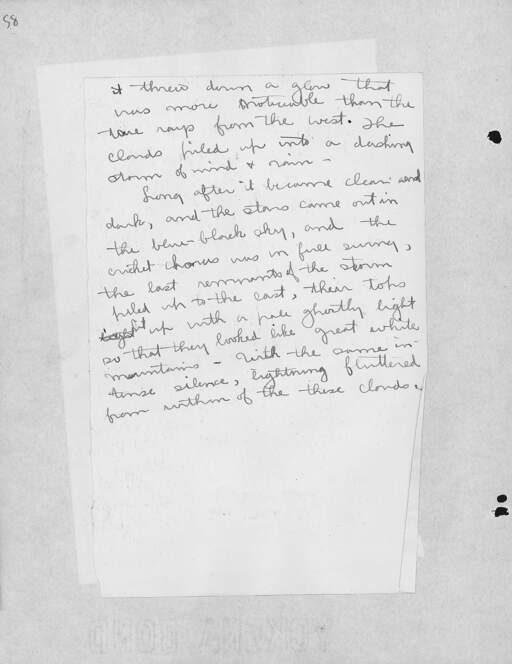 98
it threw down a glow that
was more noticeable than the
true rays from the west. The
clouds piled up into a dashing
storm of wind & rain -
Long after it became clear and
dark, and the stars came out in
the blue-black sky, and the
cricket chorus was in full swing,
the last remnants of the storm
piled up to the east, their tops
lit up with a pale ghostly light
so that they looked like great white
mountains - With the same in-
tense silence, lightning fluttered
from within of the these clouds.